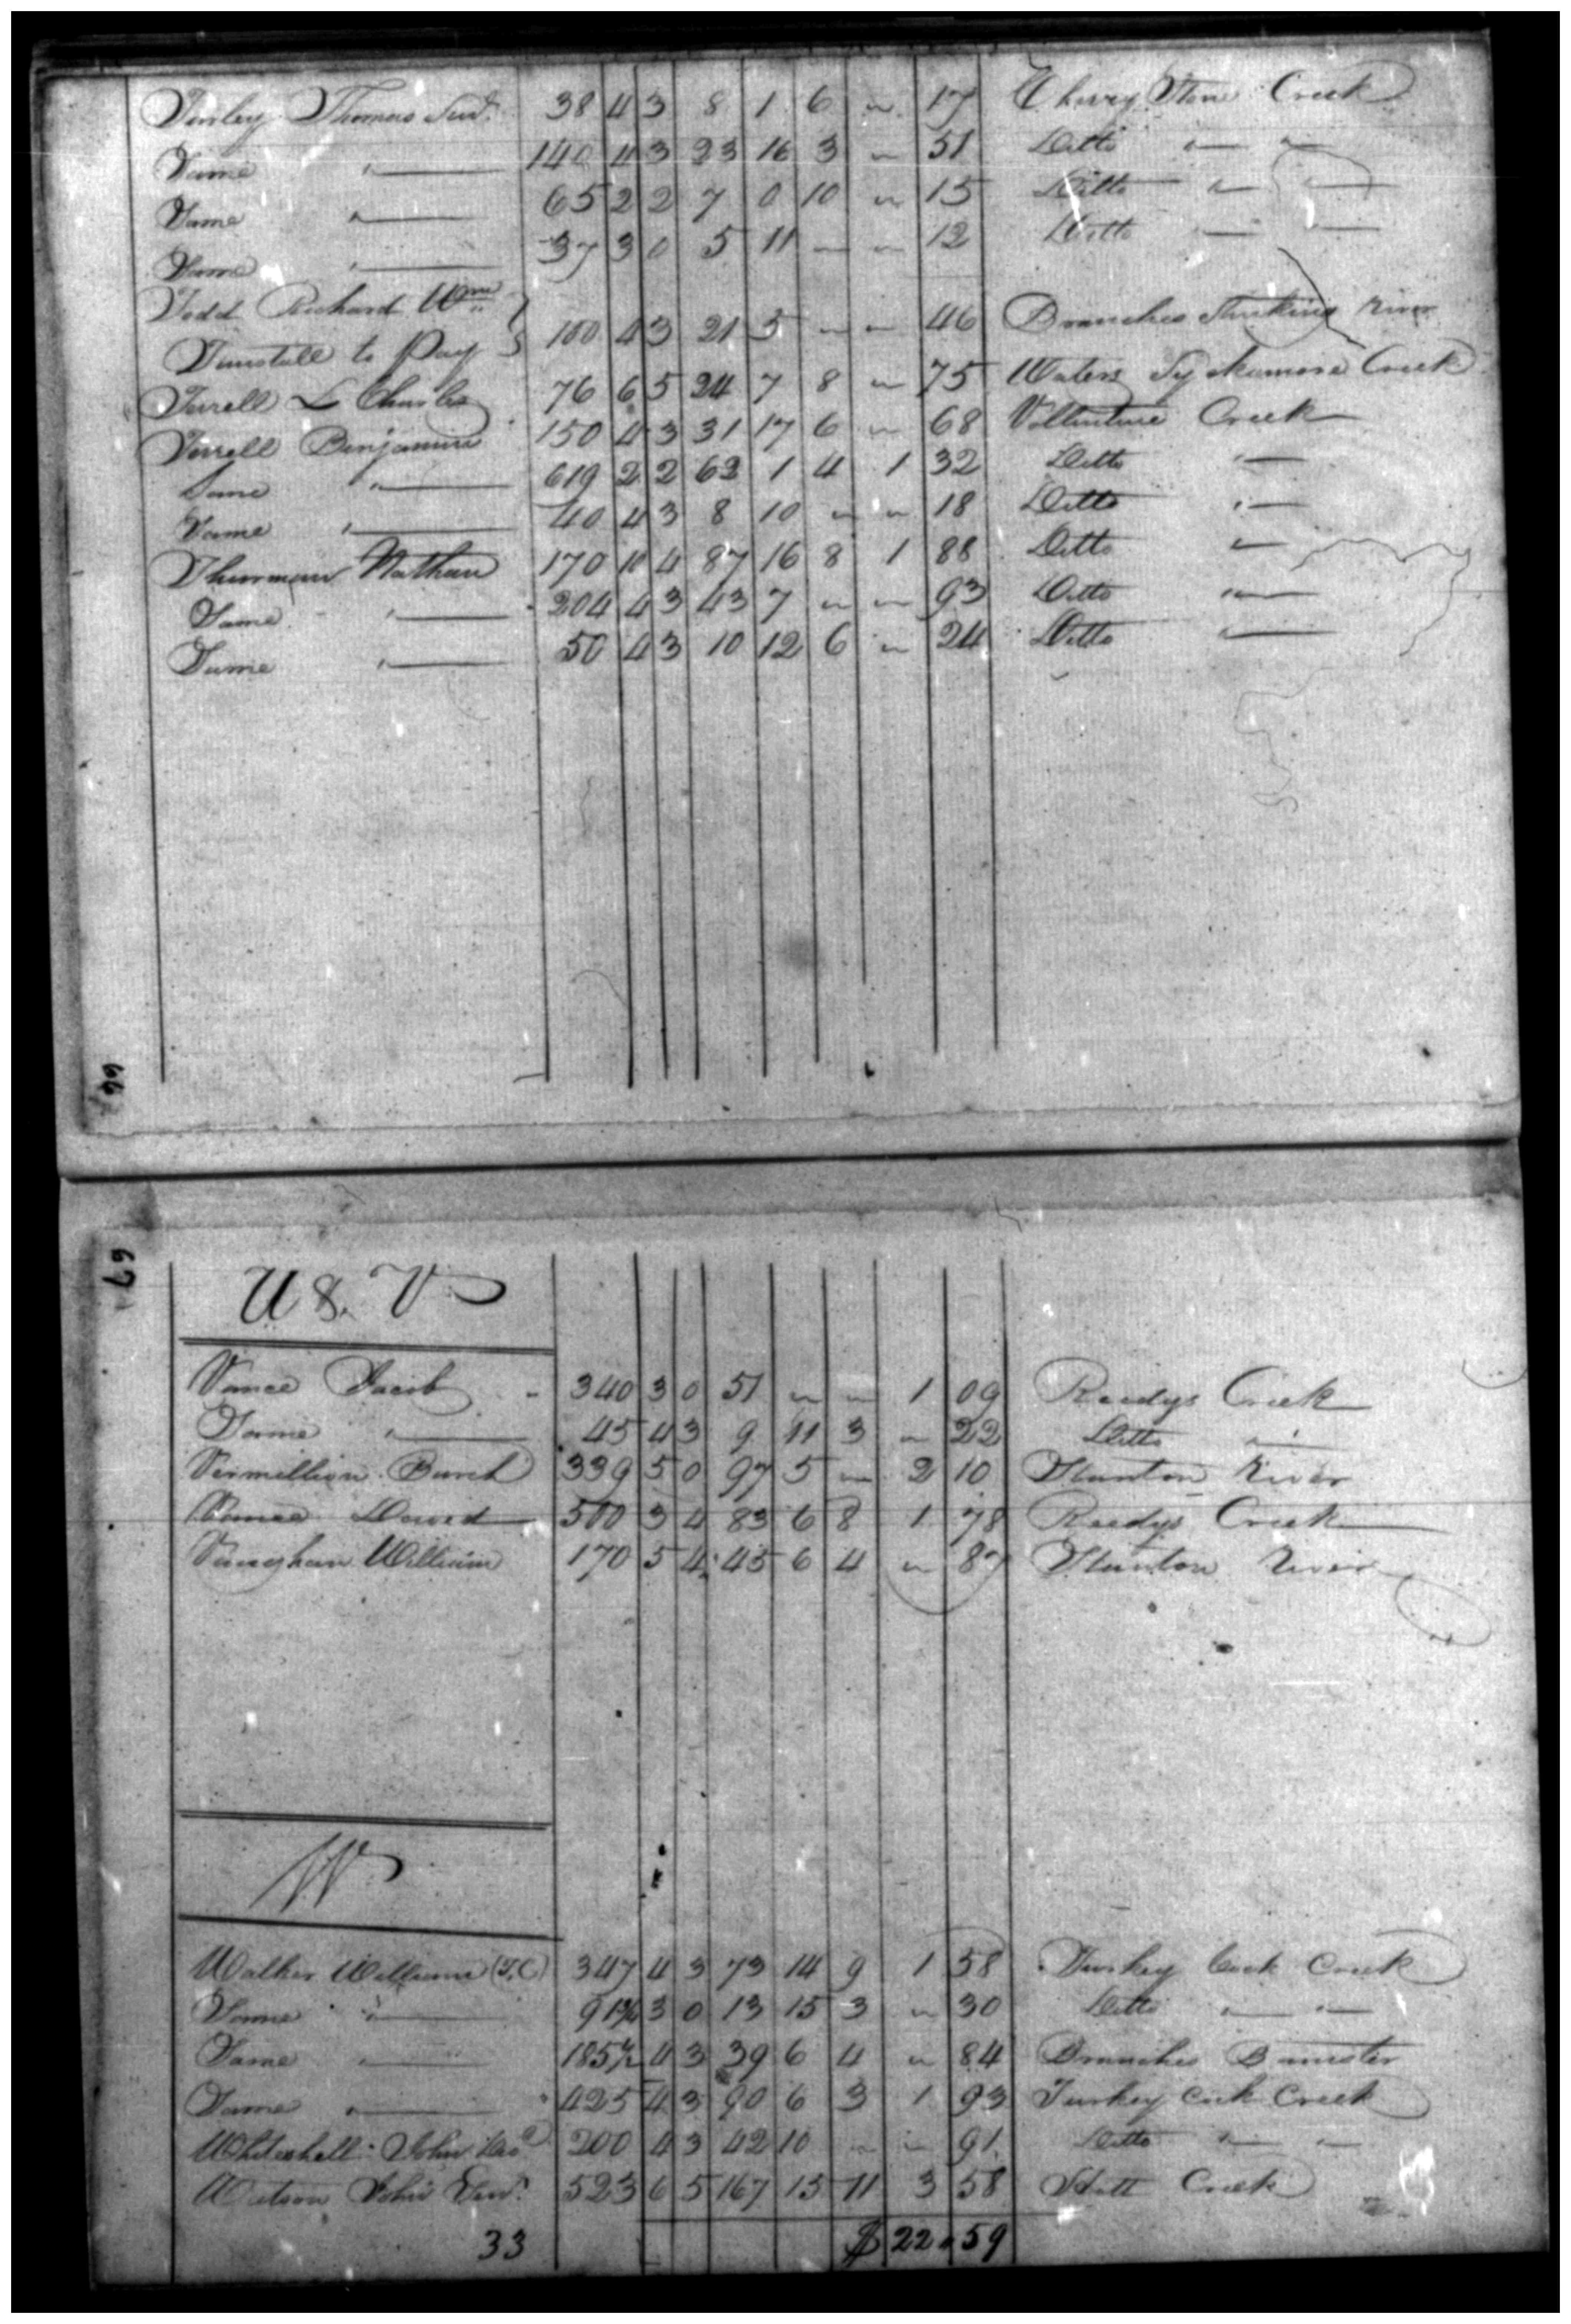 Tinley Thomas Sen.r 38 4 3 8 1 6 " 17 Cherry Stone Creek
Same " 140 4 3 23 16 3 " 51 Ditto " "
Same " 65 2 2 7 0 10 " 15 Ditto " "
Same " 37 3 0 5 11 " " 12 Ditto " "
Todd Richard Wm
Tunstall to Pay } 100 4 3 21 5 " " 46 Branches Stinking River
Terrell L Charles 76 6 5 24 7 8 " 75 Waters Syckamore Creek
Terrell Benjamin 150 4 3 31 17 6 " 68 Creek
Same " 619 2 2 62 1 4 1 32 Ditto "
Same " 40 4 3 8 10 " " 18 Ditto "
Thurman Nathan 170 10 4 87 16 8 1 88 Ditto "
Same " 204 4 3 43 7 " " 93 Ditto "
Same " 50 4 3 10 12 6 " 24 Ditto "
66
67
U & V
Vance Jacob 340 3 0 51 " " 1 09 Reedys Creek
Same " 45 4 3 9 11 3 " 22 Ditto "
Vermillion Burch 339 5 0 97 5 " 2 10 Stanton River
Vance David 500 3 4 83 6 8 1 78 Reedys Creek
Vaughan William 170 5 4 45 6 4 " 87 Stanton River
W
Walker William (T.C) 347 4 3 73 14 9 1 58 Turkey Cock Creek
Same " 3 0 13 15 3 " 30 Ditto " "
Same " 185½ 4 3 39 6 4 " 84 Branches Banister
Same " 425 4 3 90 6 3 1 93 Turkey Cock Creek
Whitehell John 200 4 3 42 10 " " 91 Ditto " "
Watson John Sen.r 523 6 5 167 15 11 3 58 Stott Creek
33 $ 22 59